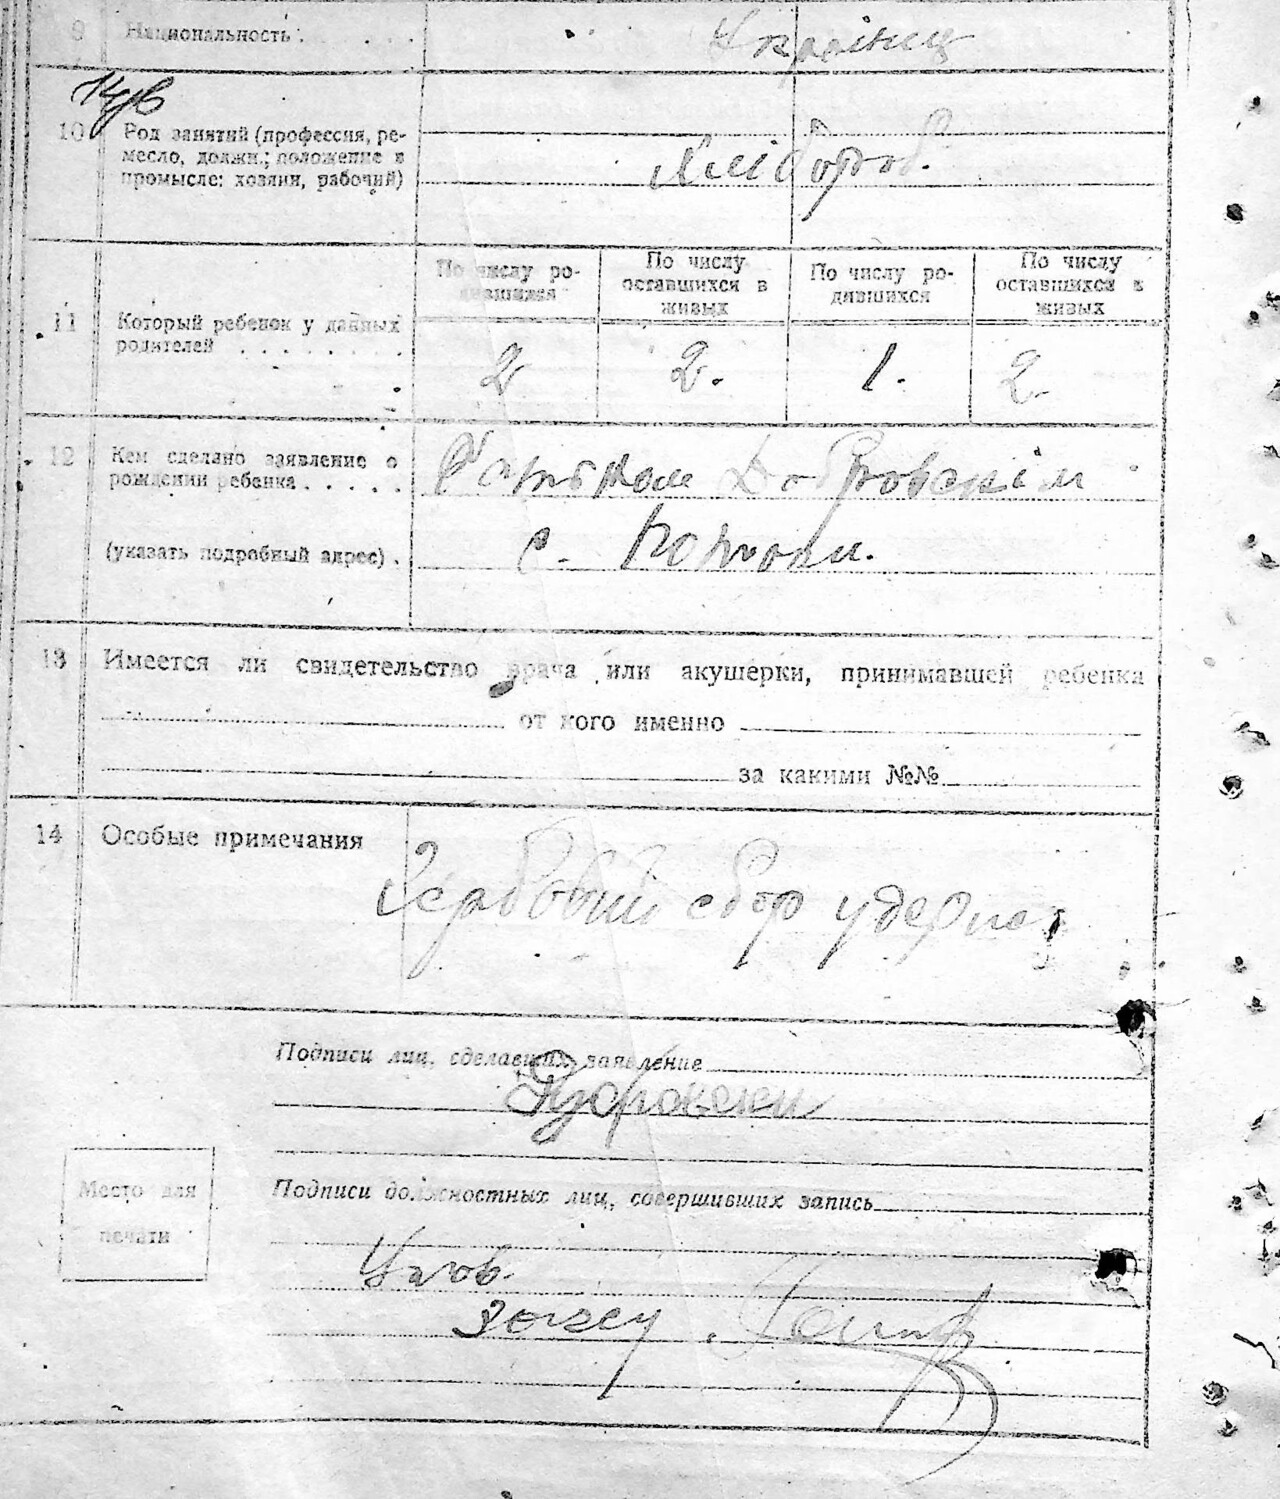 9 Национальность . . . .
Українец
14/6
10 Род занятий (профессия, ре-
месло, должн.; положение в
промысле: хозяин, рабочий)
Хлібороб.
По числу ро-
дившихся
По числу
оставшихся в
живых
По числу ро-
дившихся
По числу
оставшихся в
живых
11 Который ребенок у данных
родителей . . . . . . . .
2 2. 1. 2.
12 Кем сделано заявление о
рождении ребенка . . . . .
Батьком
(указать подробный адрес) .
с.
13 Имеется ли свидетельство врача или акушерки, принимавшей ребенка
от кого именно
за какими №№
14 Особые примечания
Гербовий сбор удержа
Подписи лиц, сделавших заявление
Место для
печати
Подписи должностных лиц, совершивших запись
Упов.